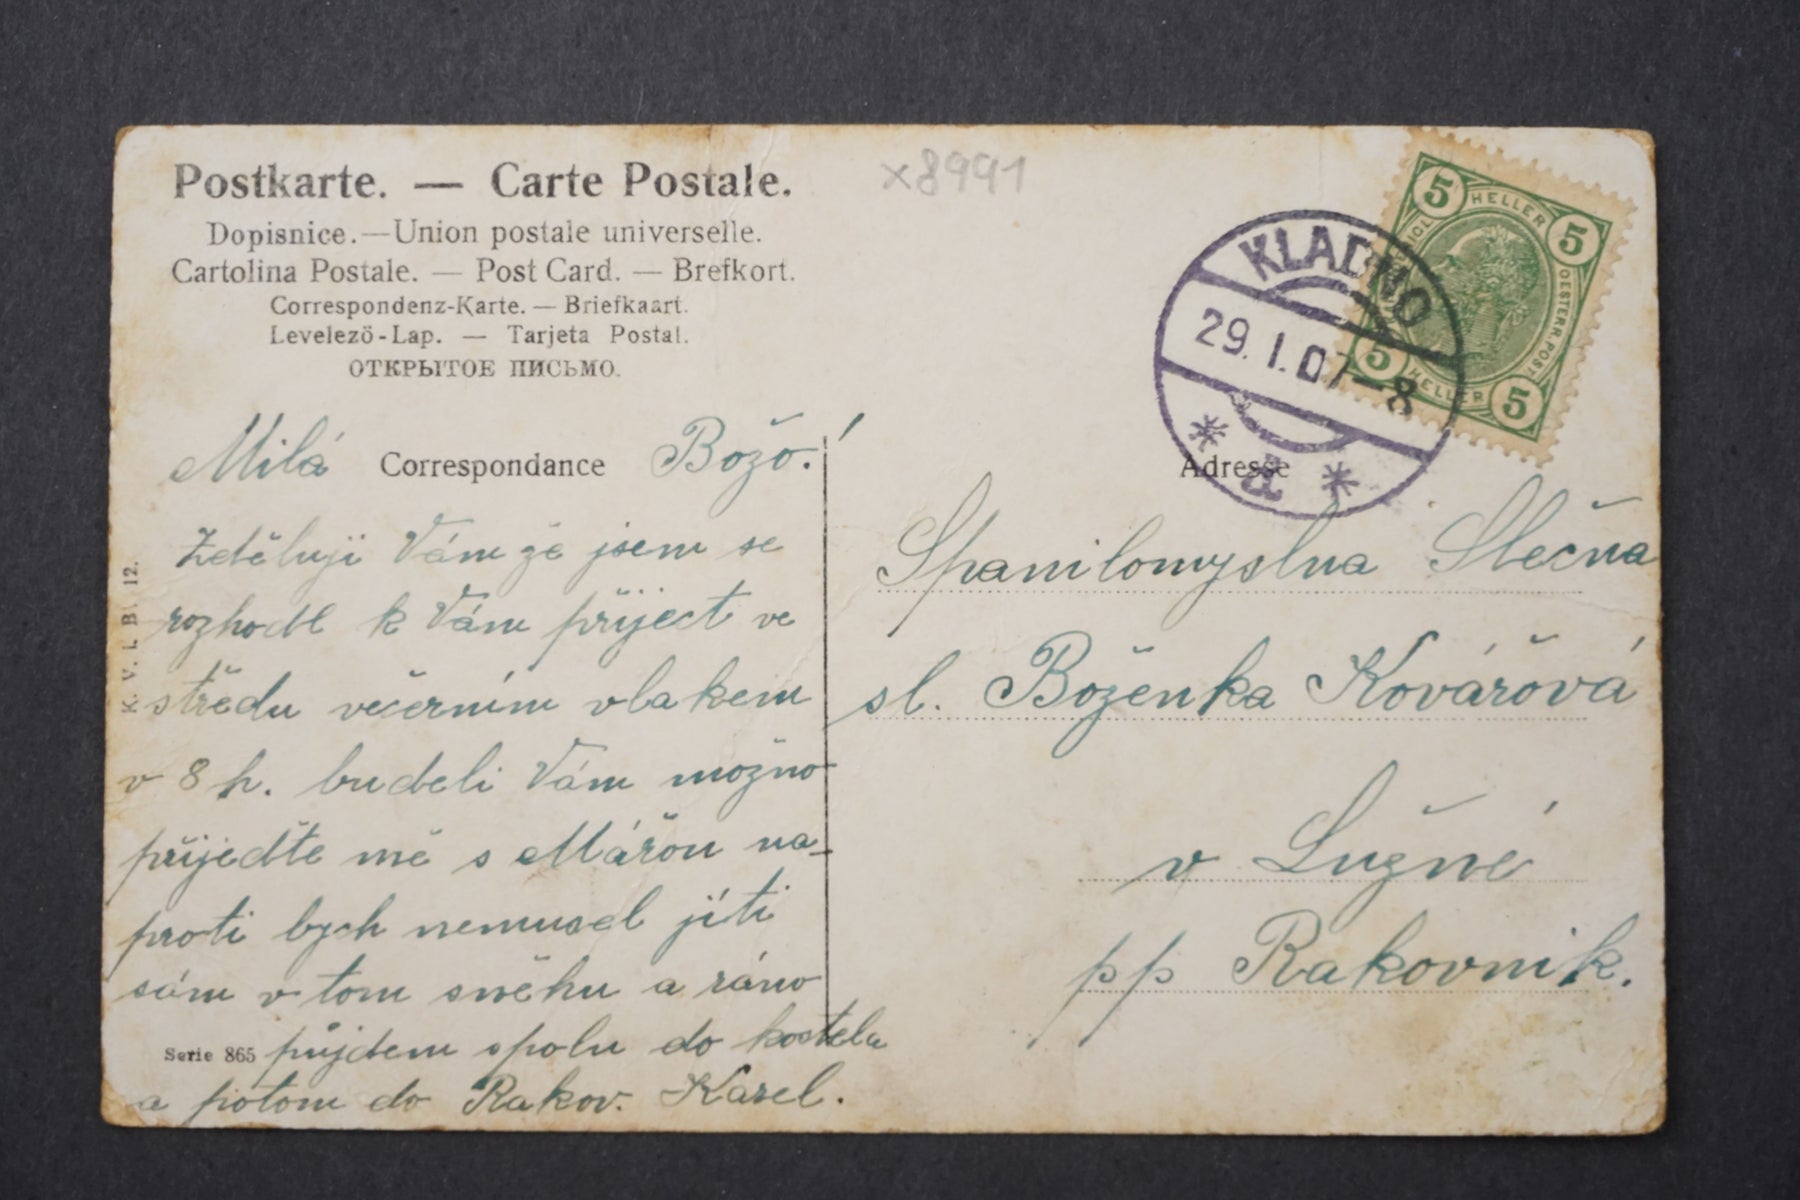 Postkarte. — Carte Postale.
Dopisnice. — Union postale universelle.
Cartolina Postale. — Post Card. — Brefkort.
Correspondenz-Karte. — Briefkaart.
Levelezö-Lap. — Tarjeta Postal.
ОТКРЫТОЕ ПИСЬМО.
x8991
KLADNO
29. I. 07–8
* d *
5 HELLER 5
OESTERR. POST
5 HELLER 5
Correspondance
Milá Božo!
Zděluji Vám že jsem se
rozhodl k Vám přiject ve
středu večerním vlakem
v 8 h. budeli Vám možno
přijedte mě s Mářou na-
proti bych nemusel jíti
sám v tom sněhu a ráno
půjdem spolu do kostela
a potom do Rakov. Karel.
Serie 865
K. V. i. B. 12.
Adresse
Spanilomyslna Slečna
sl. Boženka Kovářová
v Lužné
pp Rakovnik.